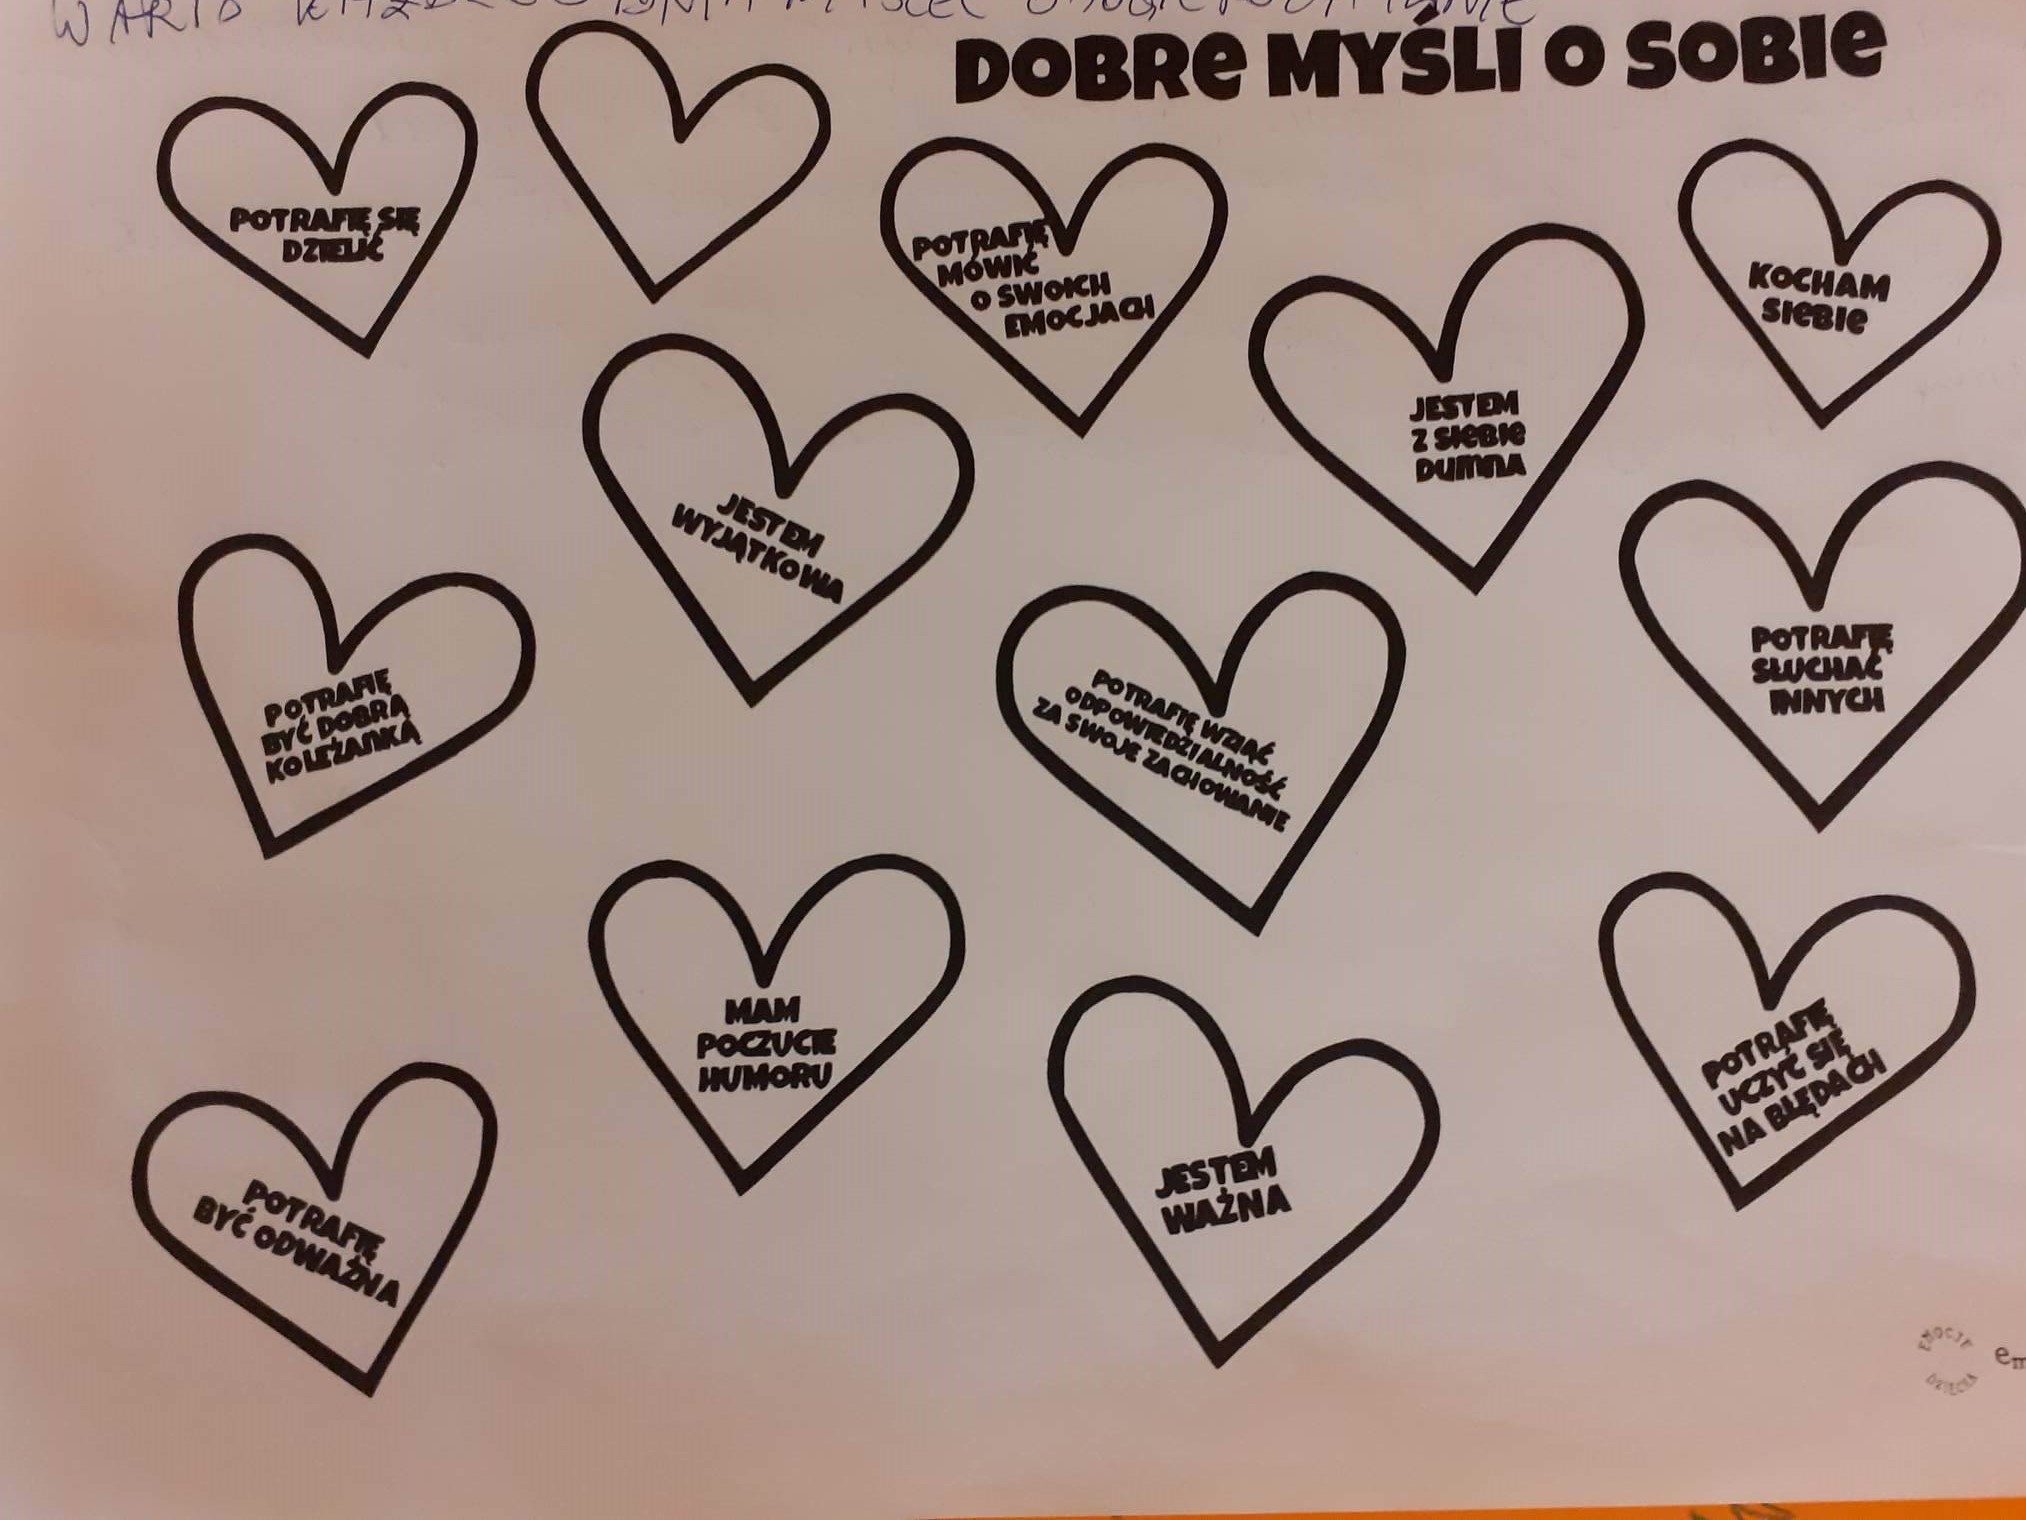 WARTO KAŻDEGO DNIA MYŚLEĆ O SOBIE POZYTYWNIE
DOBRE MYŚLI O SOBIE
POTRAFIĘ SIĘ
DZIELIĆ
POTRAFIĘ
MÓWIĆ
O SWOICH
EMOCJACH
KOCHAM
SIEBIE
JESTEM
Z SIEBIE
DUMNA
JESTEM
WYJĄTKOWA
POTRAFIĘ
SŁUCHAĆ
INNYCH
POTRAFIĘ
BYĆ DOBRĄ
KOLEŻANKĄ
POTRAFIĘ WZIĄĆ
ODPOWIEDZIALNOŚĆ
ZA SWOJE ZACHOWANIE
MAM
POCZUCIE
HUMORU
POTRAFIĘ
UCZYĆ SIĘ
NA BŁĘDACH
JESTEM
WAŻNA
POTRAFIĘ
BYĆ ODWAŻNA
EMOCJE
DZIECKA
em